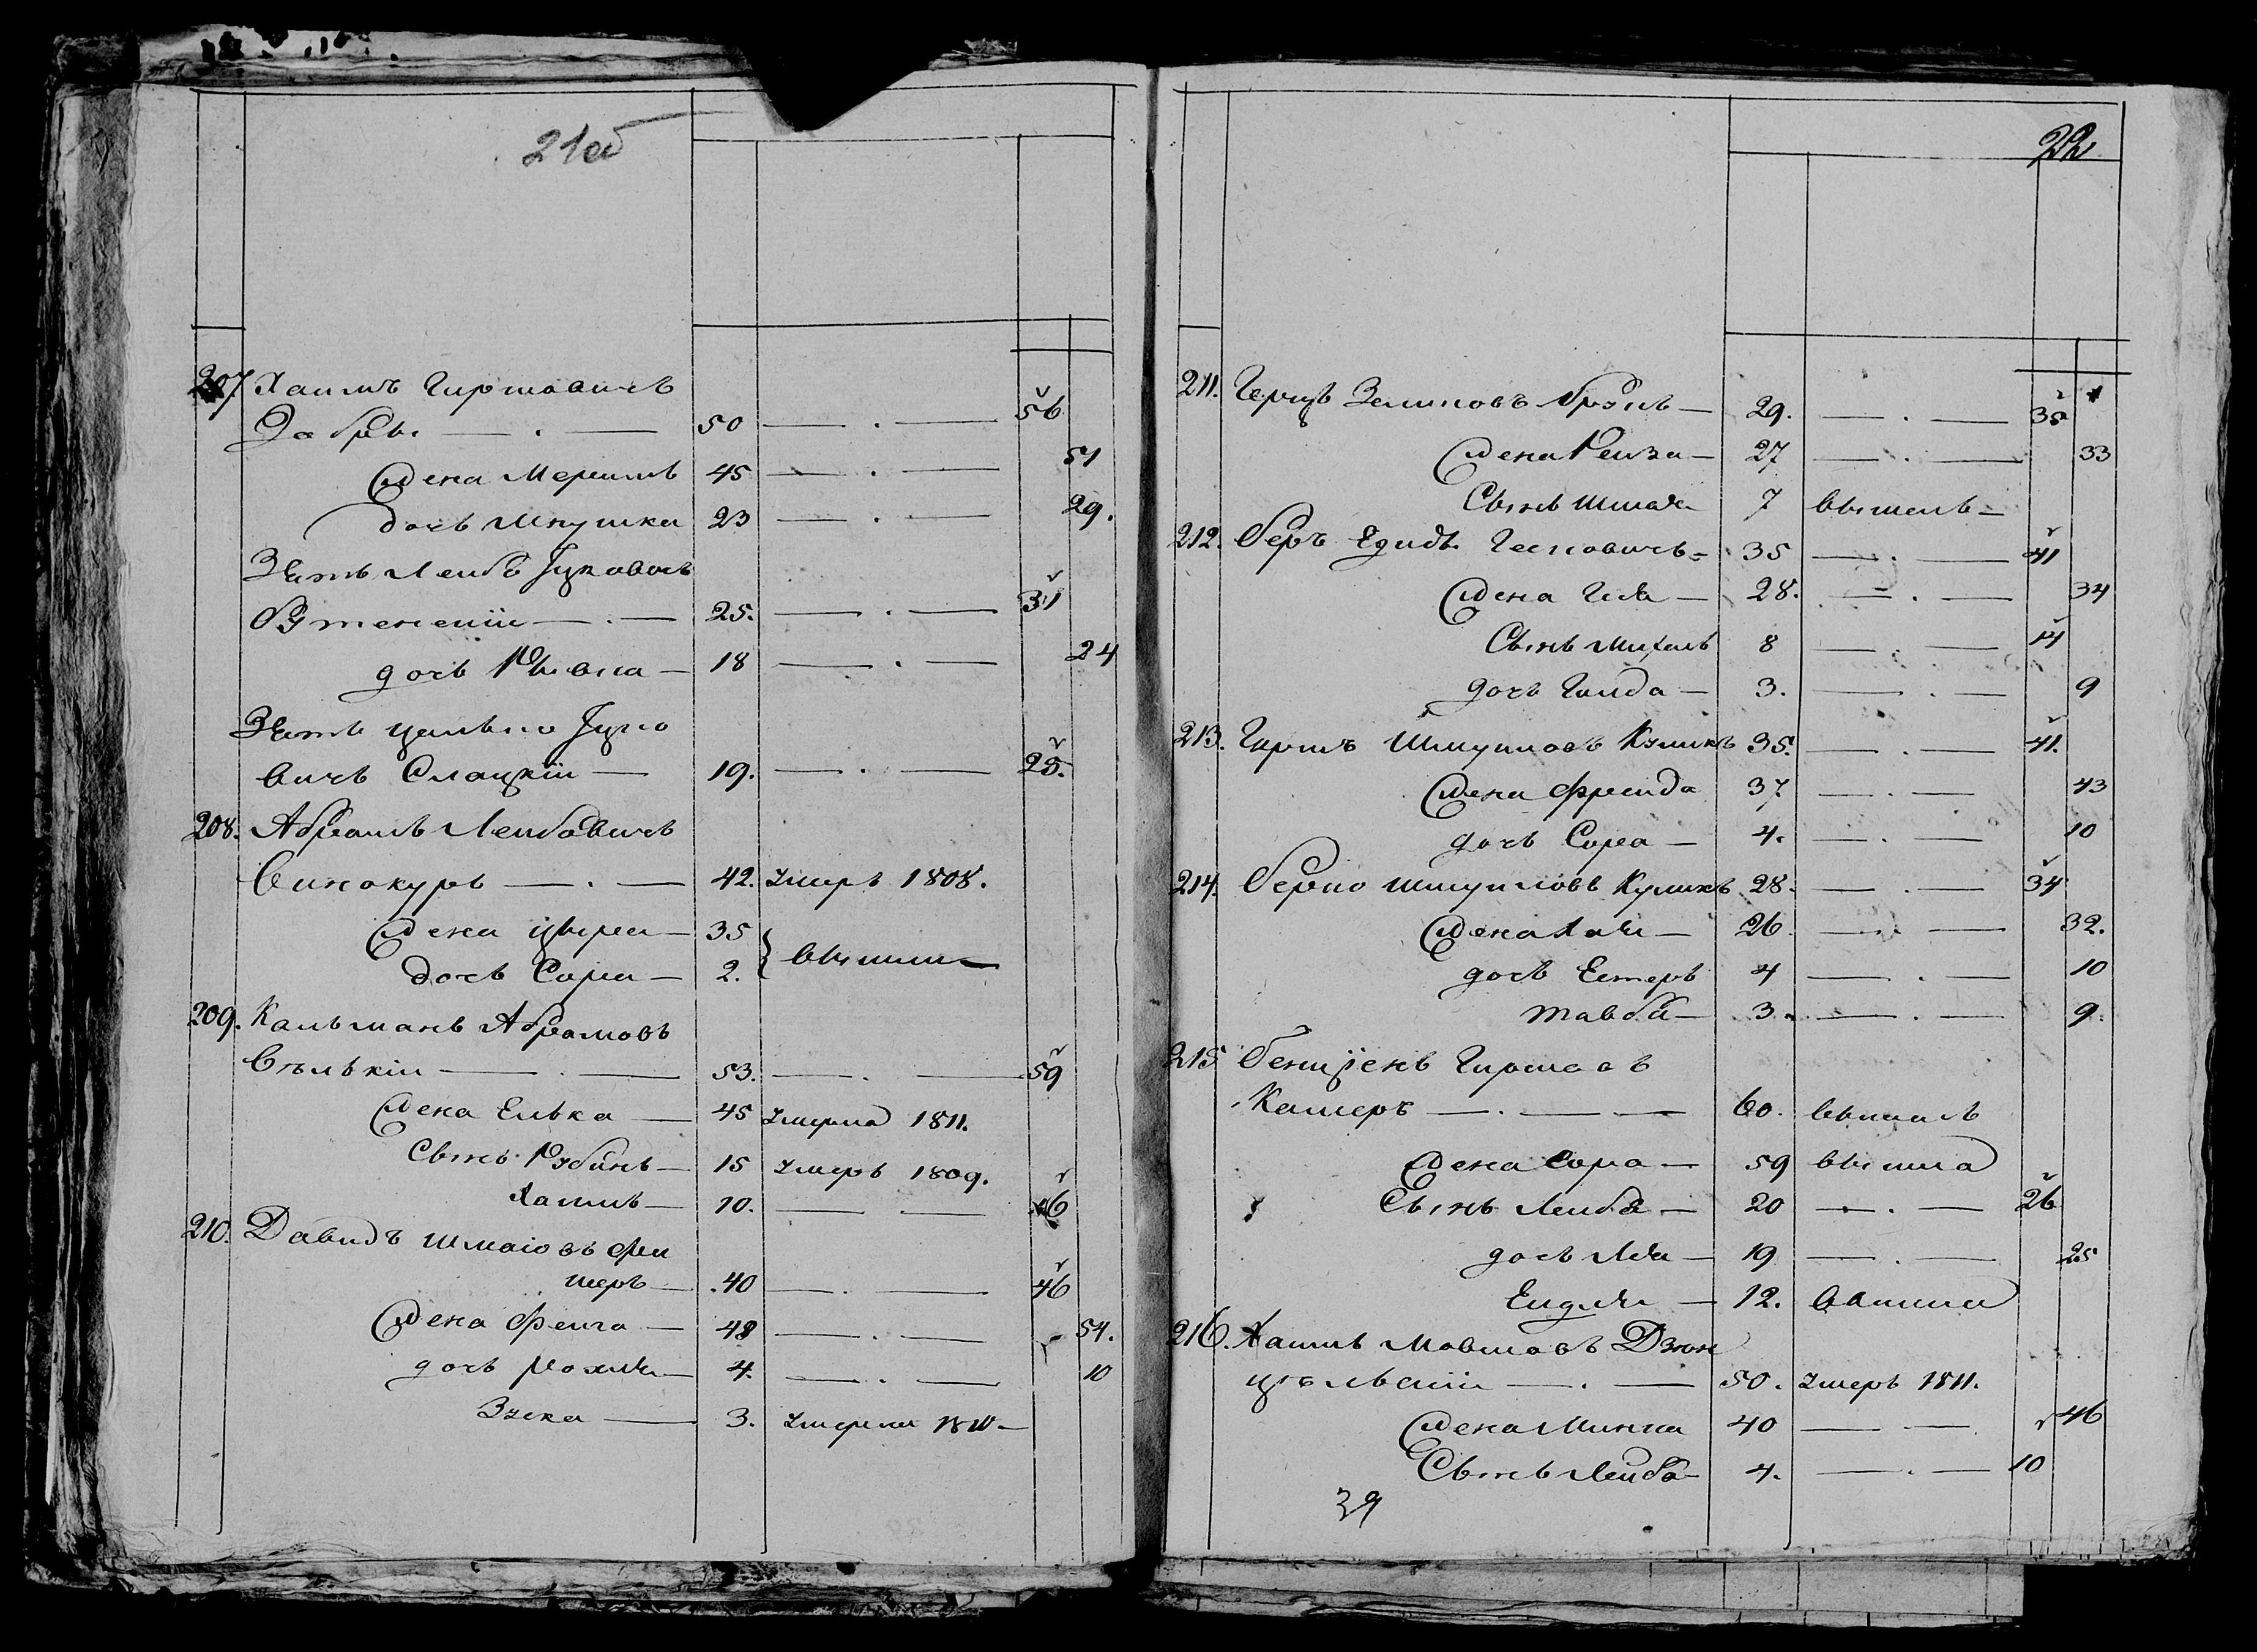 21об
207. Хаимъ Гиршовичъ
Забре — . — 50 — . — 56
Жена Меримъ 45 — . — 51
дочь Мнушка 23 — . — 29.
Зять Лейбъ Іцковичъ
25. — . — 31
дочь Рывка — 18 — . — 24
Зять Іцко
вичъ Слацкій — 19. — . — 25.
208. Абрамъ Лейбовичъ
Винокуръ — . — 42. Умеръ 1808.
Жена Цыра — 35
дочь Сора — 2. вышли —
209. Кальманъ Абрамовъ
53. — . — 59
Жена Елька — 45 Умерла 1811.
Сынъ Рубинъ — 15 Умеръ 1809.
Хаимъ — 10. — — 16
210. Давидъ Шмаіовъ Фи
шеръ — 40 — . — 46
Жена Фейга — 48 — . — 54.
дочь Рохля — 4. — . — 10
Зуска — 3. Умерла 1810 —
22
211. Герцъ Зелиховъ — 29. — . — 35
Жена Рейза — 27 — . — 33
Сынъ 7 вышелъ —
212. Беръ 35 — . — 41
Жена Гися — 28. — . — 34
Сынъ Михель 8 — . — 14
дочь Голда — 3. — . — 9
213. Гиршъ Шмуиловъ Куликъ 35. — . — 41.
Жена Фрейда 37. — . — 43
дочь Сора — 4. — . — 10
214. Берко Шмуиловъ Куликъ 28. — . — 34
Жена Хая — 26. — . — 32.
дочь Естеръ 4 — . — 10
Тавба — 3. — . — 9.
215 Гиршовъ
— . — — 60. вышелъ
Жена Сора — 59 вышла
Сынъ Лейба — 20 — . — 26
дочь Лея — 19 — . — 25
Ендля — 12. вышла
216. Хаимъ Мовшовъ Дзюн
— . — 50. Умеръ 1811.
Жена Минка 40 — . — 46
Сынъ Лейба — 4. — . — 10
39